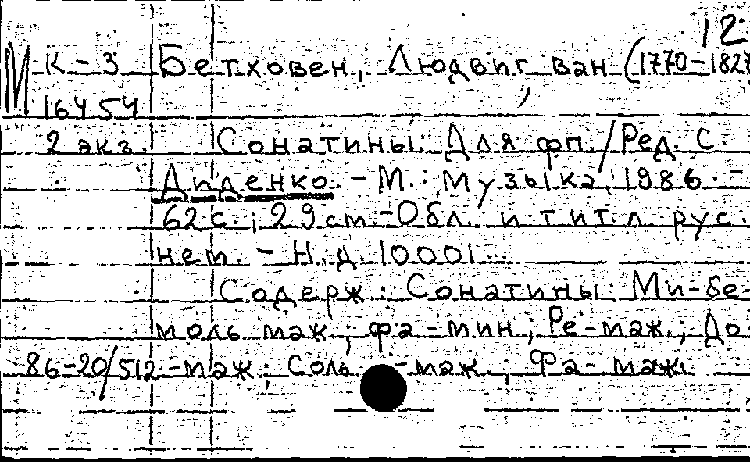 12
М К-3 Бетховен, Людвиг ван (1770-1827
16454
2 экз. Сонатины: Для фп. / Ред. С.
Диденко. - М.: Музыка, 1986. -
62 с.; 29 cm. - Обл. и тит. л. рус.
нем. - Н. д. 10001.
Содерж.: Сонатины: Ми-бе-
моль маж.; фа-мин.; Ре-маж.; До
86-20/512 -маж.; Соль-маж.; Фа-маж.